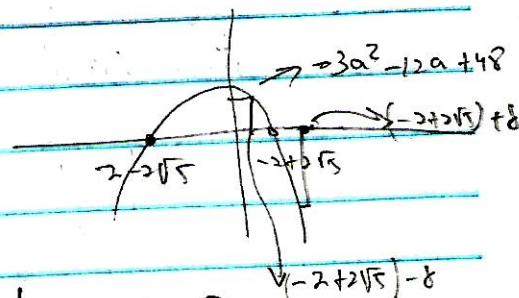 -3a² -12a +48
(-2+2√5) +8
-2-2√5
-2+2√5
(-2+2√5) -8